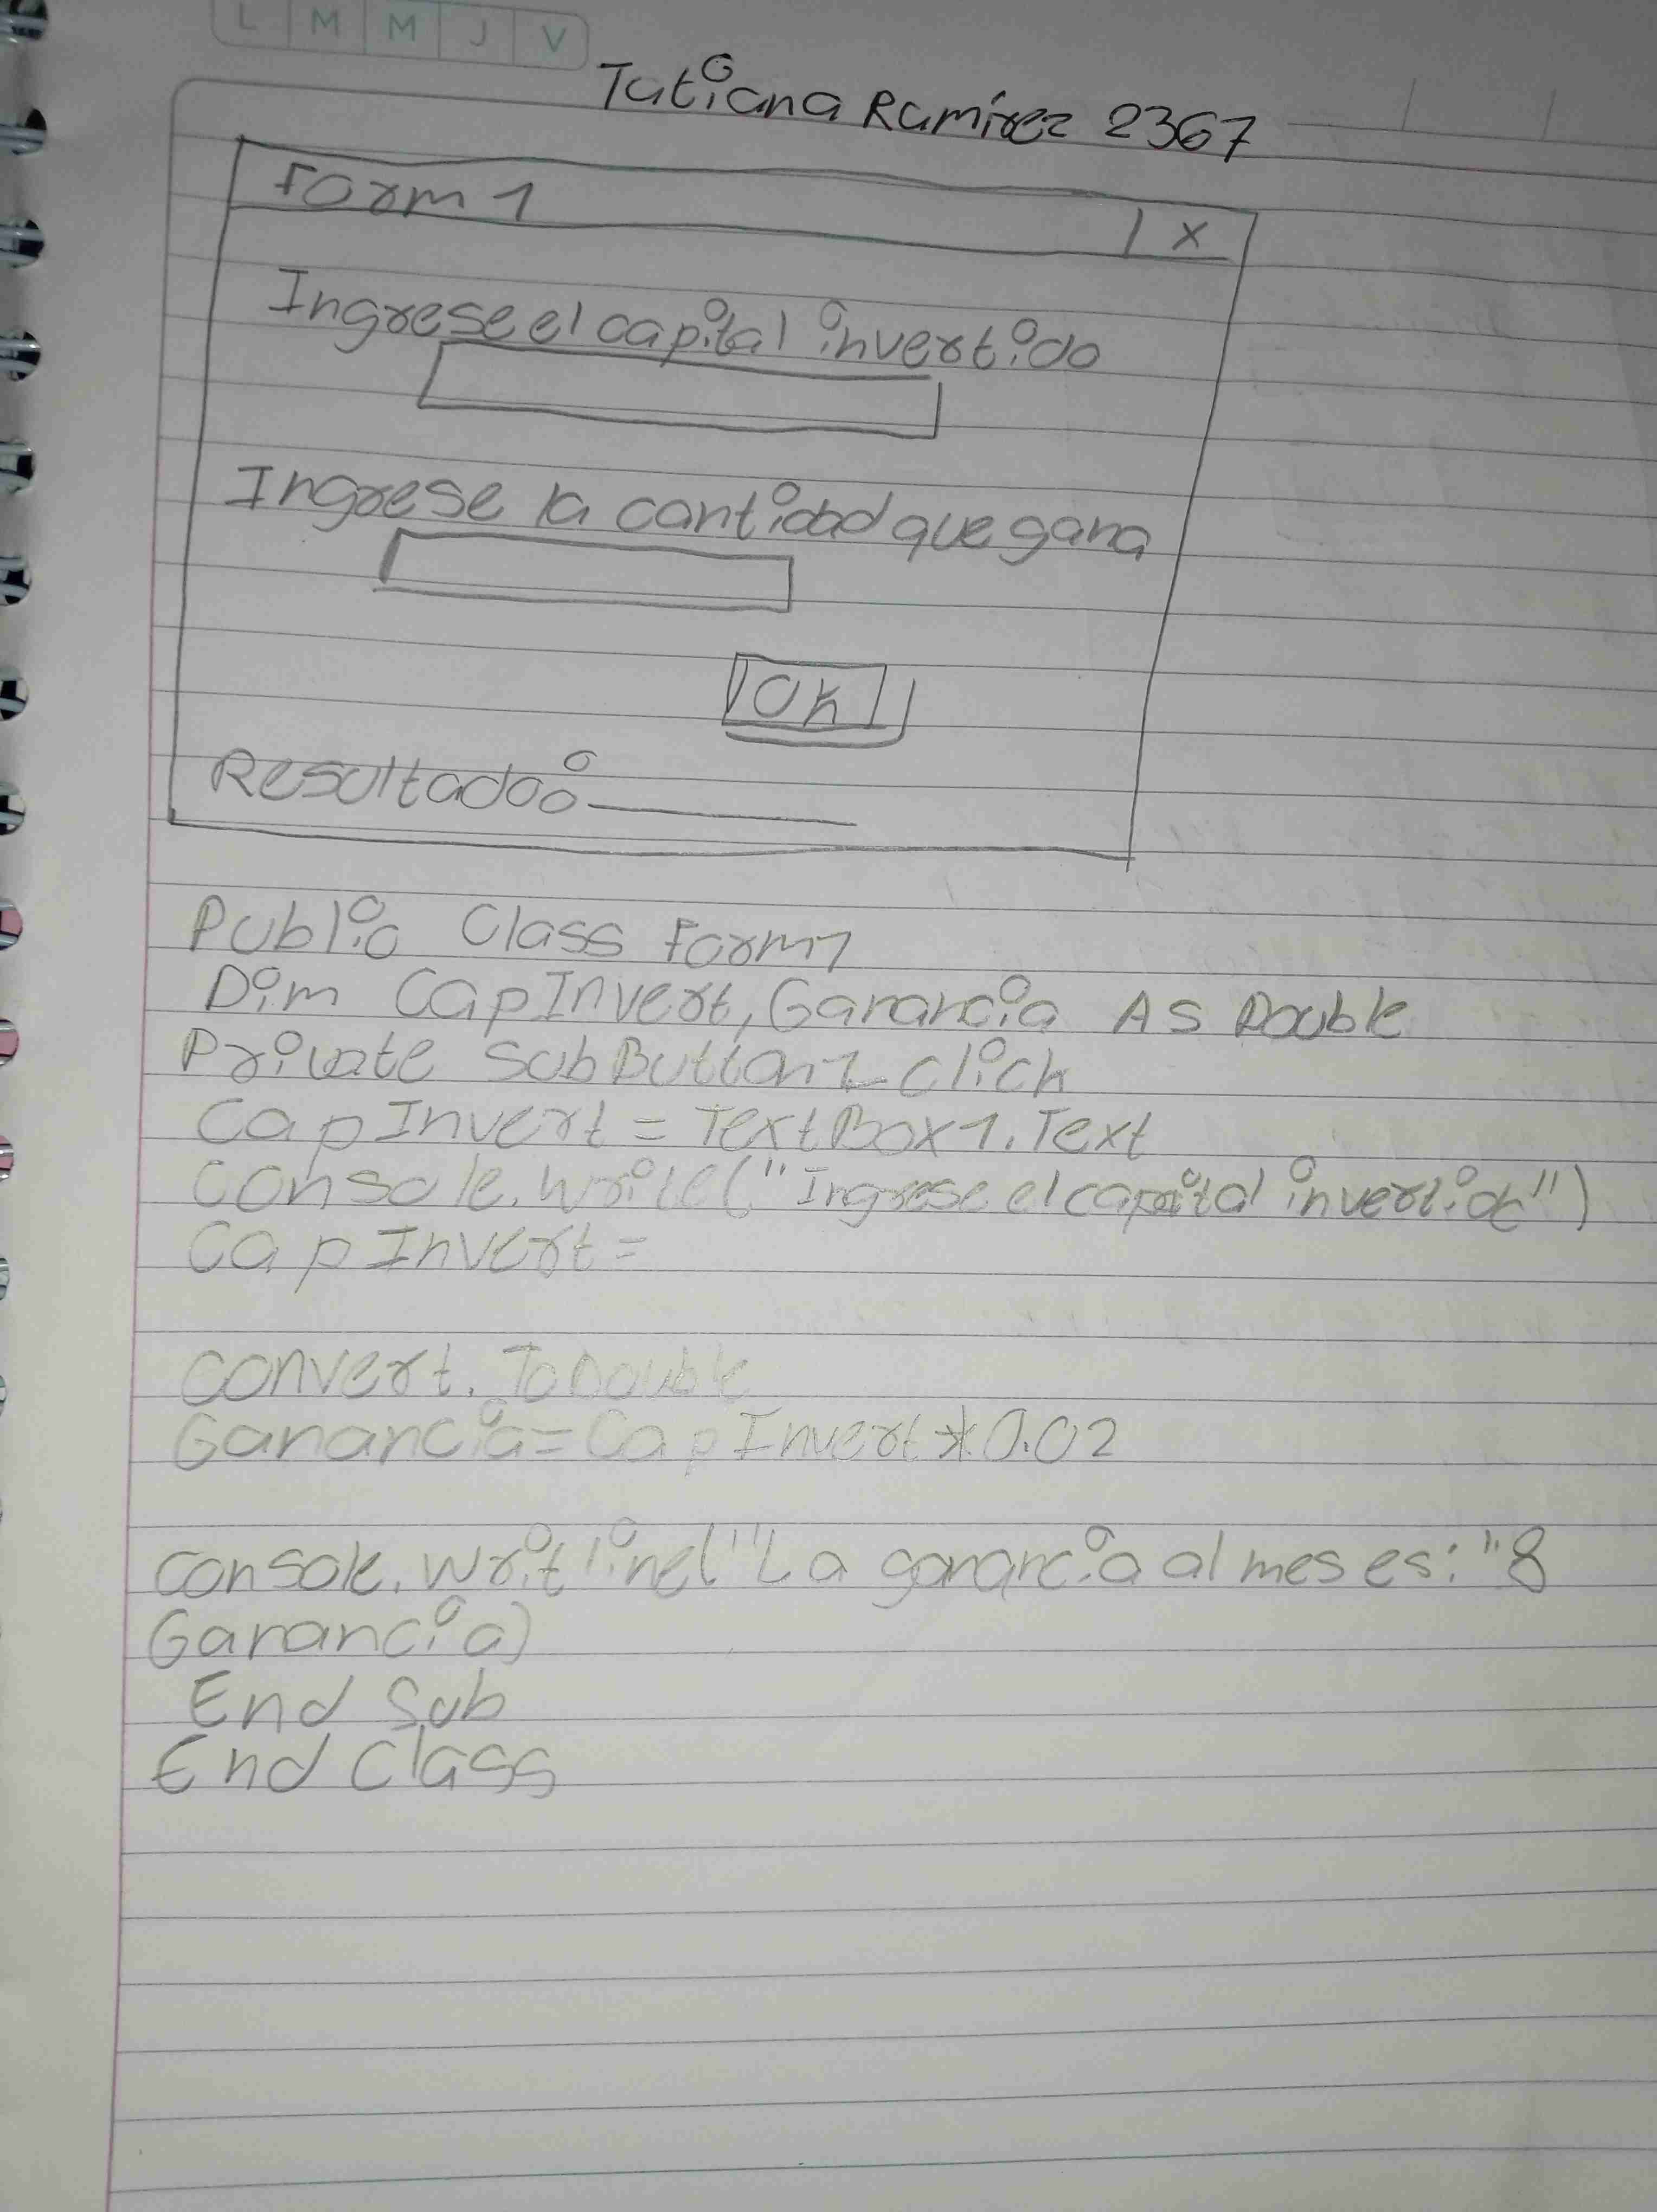 L M M J V
Tatiana Ramírez 2367
Form 1 X
Ingrese el capital invertido
Ingrese la cantidad que gana
Ok
Resultado:
Public Class Form1
Dim CapInvert, Ganancia As Double
Private Sub Button1_Click
CapInvert = TextBox1.Text
Console.Write("Ingrese el capital invertido")
CapInvert =
Convert.ToDouble
Ganancia = CapInvert * 0.02
Console.Writline("La ganancia al mes es: " &
Ganancia)
End Sub
End Class